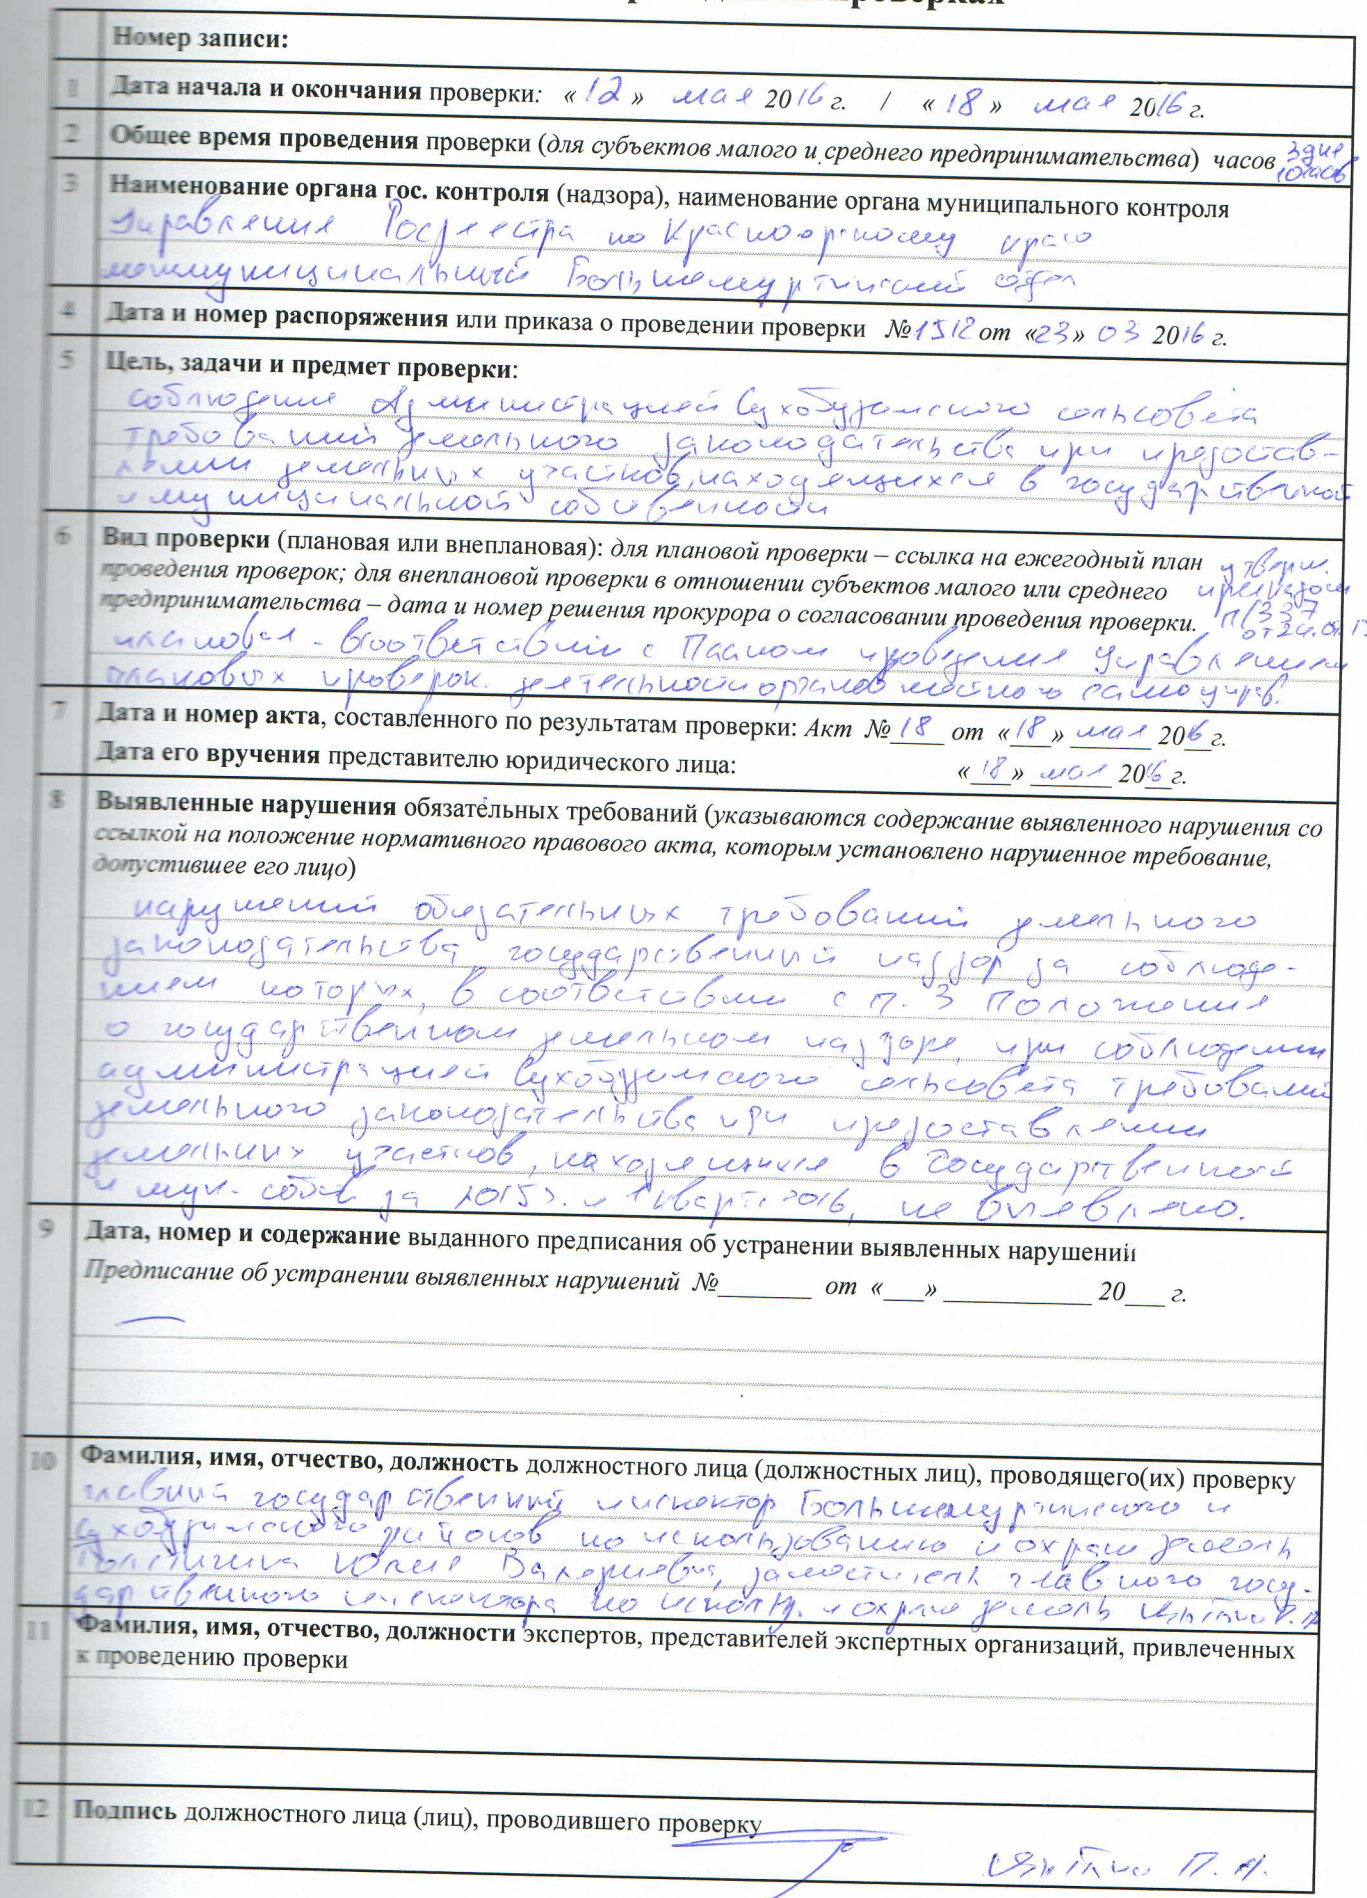 проверках
Номер записи:
1 Дата начала и окончания проверки: «12» мая 2016 г. / «18» мая 2016 г.
2 Общее время проведения проверки (для субъектов малого и среднего предпринимательства) часов 3 дня
10 часов
3 Наименование органа гос. контроля (надзора), наименование органа муниципального контроля
Управление Росреестра по Красноярскому краю
межмуниципальный Большемуртинский отдел
4 Дата и номер распоряжения или приказа о проведении проверки № 1512 от «23» 03 2016 г.
5 Цель, задачи и предмет проверки:
соблюдение Администрацией Сухобузимского сельсовета
требований земельного законодательства при предостав-
лении земельных участков, находящихся в государственной
и муниципальной собственности
6 Вид проверки (плановая или внеплановая): для плановой проверки – ссылка на ежегодный план утверж.
проведения проверок; для внеплановой проверки в отношении субъектов малого или среднего приказом
предпринимательства – дата и номер решения прокурора о согласовании проведения проверки. П/337
плановая - в соответствии с Планом проведения Управлением
плановых проверок деятельности органов местного самоуправ.
7 Дата и номер акта, составленного по результатам проверки: Акт № 18 от «18» мая 2016 г.
Дата его вручения представителю юридического лица: «18» мая 2016 г.
8 Выявленные нарушения обязательных требований (указываются содержание выявленного нарушения со
ссылкой на положение нормативного правового акта, которым установлено нарушенное требование,
допустившее его лицо)
нарушений обязательных требований земельного
законодательства государственный надзор за соблюде-
нием которых, в соответствии с п. 3 Положения
о государственном земельном надзоре, при соблюдении
администрацией Сухобузимского сельсовета требований
земельного законодательства при предоставлении
земельных участков, находящихся в государственной
и мун. собств за 2015г. и 1 квартал 2016, не выявлено.
9 Дата, номер и содержание выданного предписания об устранении выявленных нарушений
Предписание об устранении выявленных нарушений №_______ от «___» ___________ 20___ г.
10 Фамилия, имя, отчество, должность должностного лица (должностных лиц), проводящего(их) проверку
главный государственный инспектор Большемуртинского и
Сухобузимского районов по использованию и охране земель
Юлия Валерьевна, заместитель главного госу-
дарственного инспектора по использ. и охране земель
11 Фамилия, имя, отчество, должности экспертов, представителей экспертных организаций, привлеченных
к проведению проверки
12 Подпись должностного лица (лиц), проводившего проверку